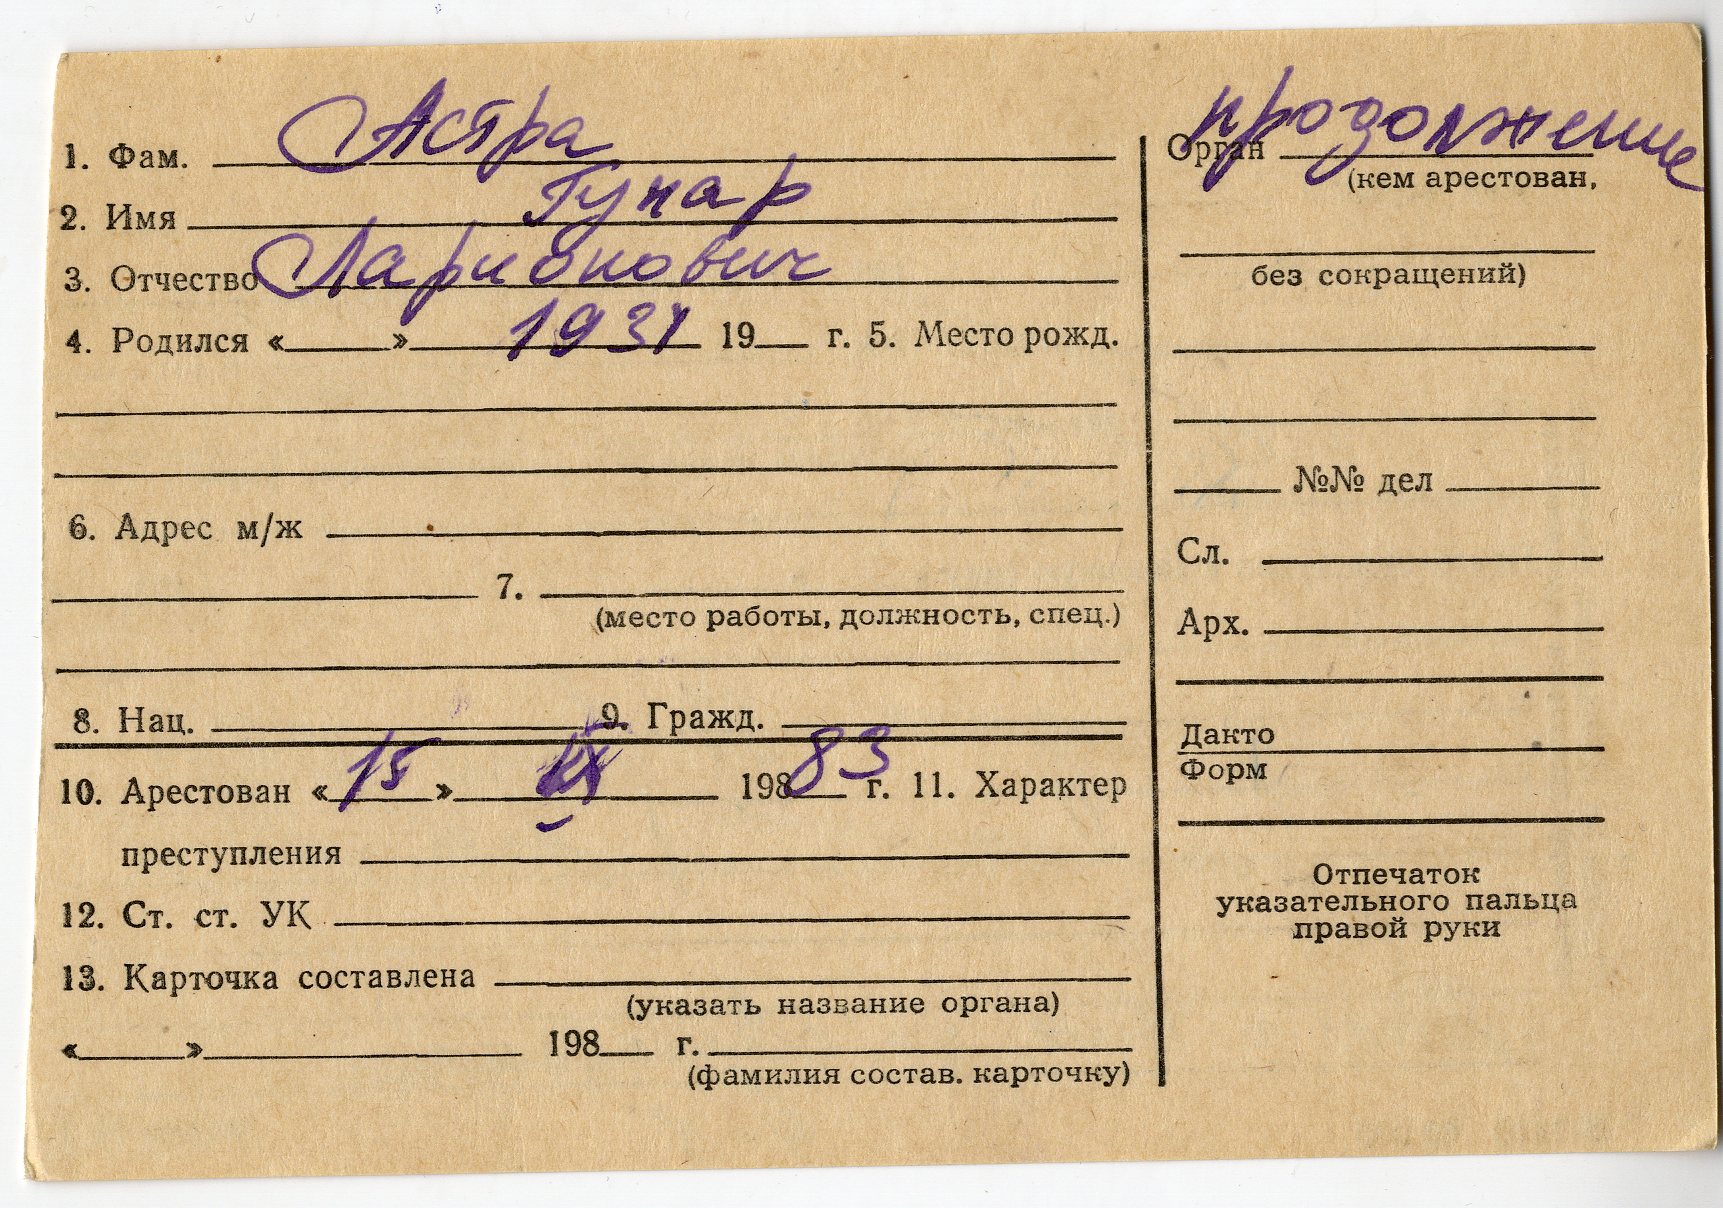 1. Фам. Астра
2. Имя Гунар
3. Отчество Ларионович
4. Родился « » 1931 19 г. 5. Место рожд.
6. Адрес м/ж
7.
(место работы, должность, спец.)
8. Нац. 9. Гражд.
10. Арестован « 15 » IX 1983 г. 11. Характер
преступления
12. Ст. ст. УК
13. Карточка составлена
(указать название органа)
« » 198 г.
(фамилия состав. карточку)
продолжение
Орган
(кем арестован,
без сокращений)
№№ дел
Сл.
Арх.
Дакто
Форм
Отпечаток
указательного пальца
правой руки